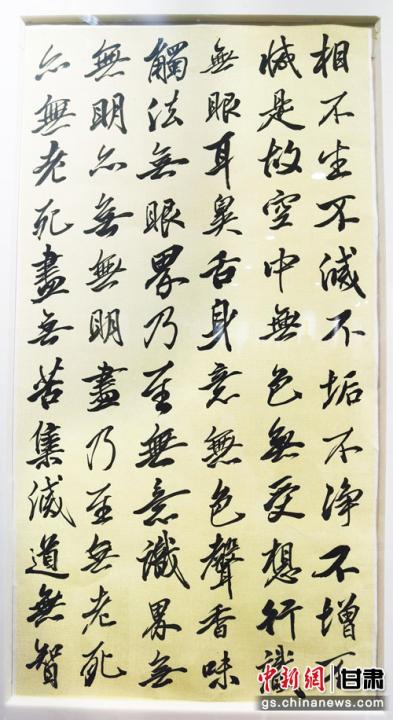 相不生不滅不垢不净不增不
減是故空中無色無受想行識
無眼耳鼻舌身意無色聲香味
觸法無眼界乃至無意識界無
無明亦無無明盡乃至無老死
亦無老死盡無苦集滅道無智
中新網 甘肃
gs.chinanews.com